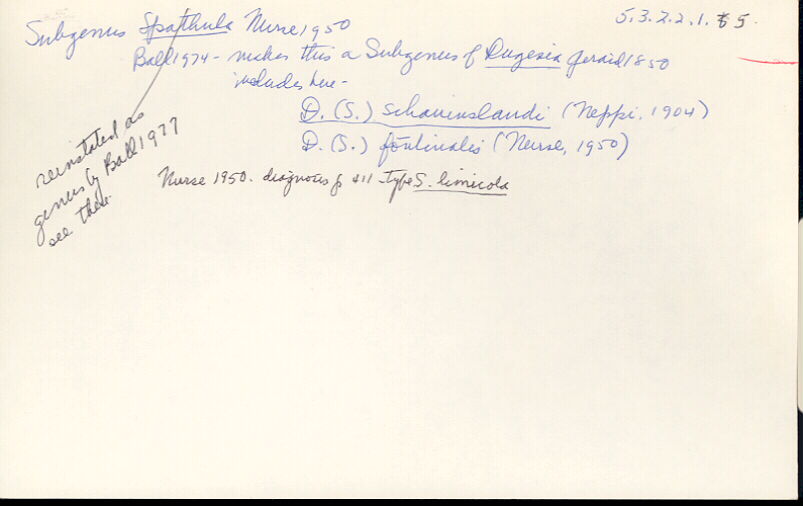 Subgenus Spathula Nurse 1950
5.3.2.2.1.65.
Ball 1974 - makes this a Subgenus of Dugesia Girard 1850
includes here -
D. (S.) schauinslandi (Neppi, 1904)
D. (S.) fontinalis (Nurse, 1950)
reinstated as
genus by Ball 1977
see there.
Nurse 1950. diagnosis p 411 type S. limicola